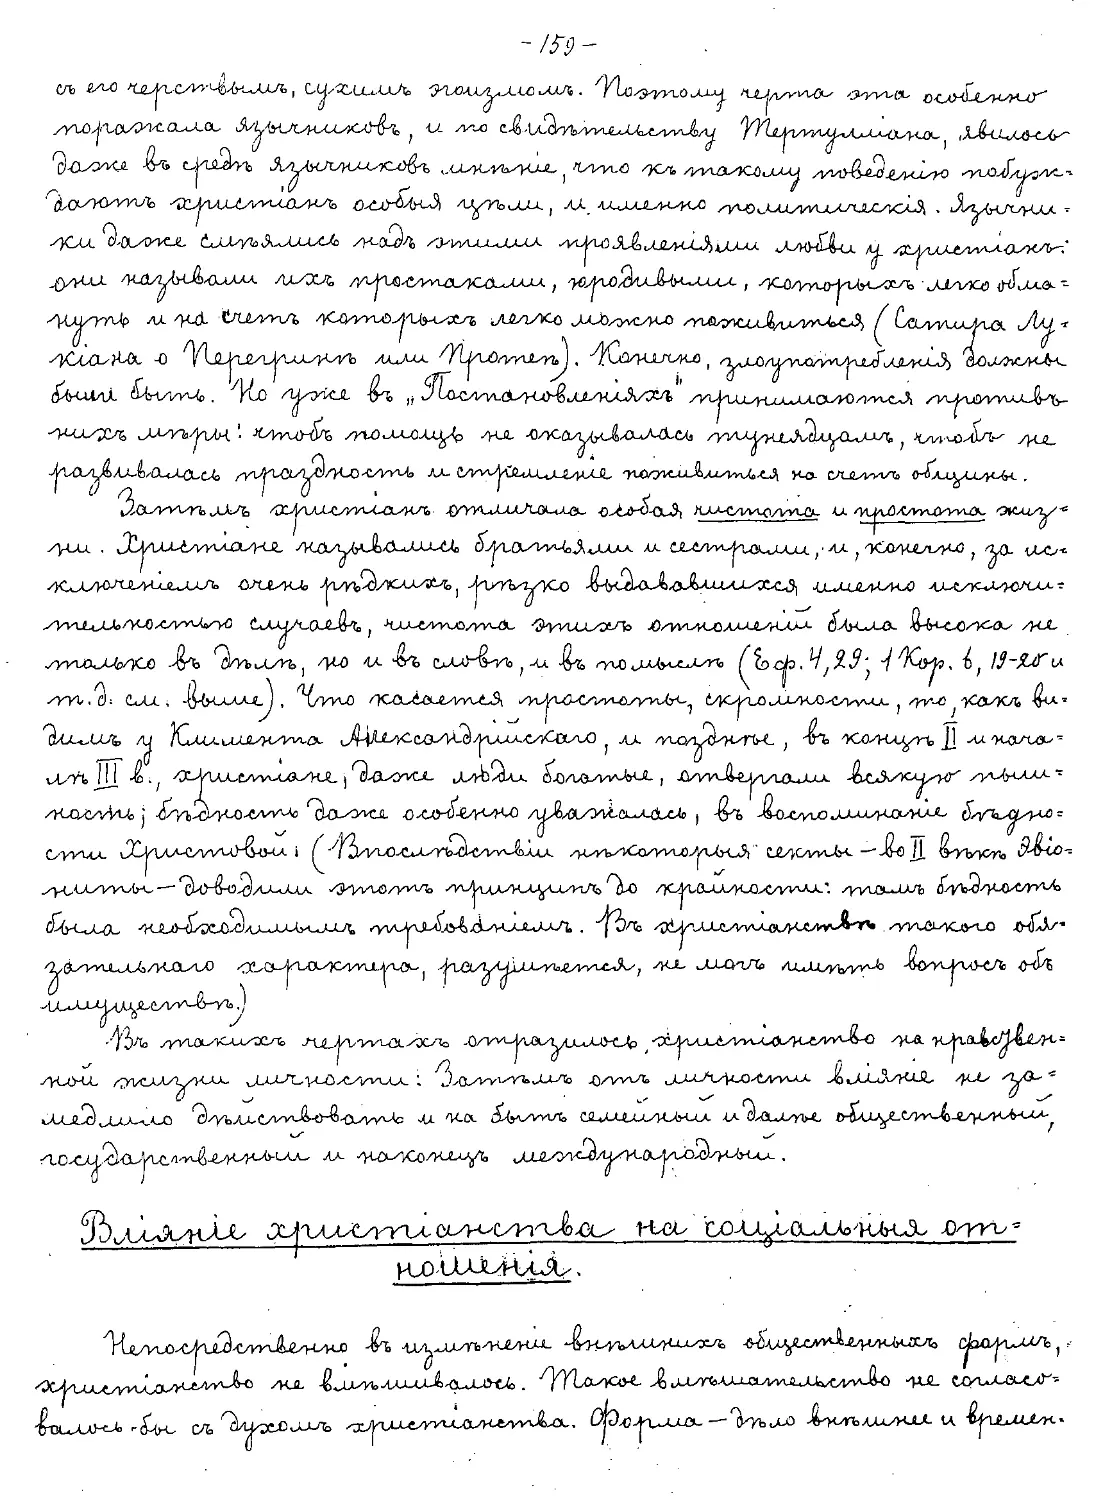 -159-
съ его черствымъ, сухимъ эгоизмомъ. Поэтому черта эта особенно
поражала язычниковъ, и по свидѣтельству Тертулліана, явилось
даже въ средѣ язычниковъ мнѣніе, что къ такому поведенію побуж=
даютъ христіанъ особыя цѣли, и именно политическія. Язычни=
ки даже смѣялись надъ этими проявленіями любви у христіанъ:
они называли ихъ простаками, юродивыми, которыхъ легко обма=
нуть и на счетъ которыхъ легко можно поживиться (Сатира Лу=
кіана о Перегринѣ или Протеѣ). Конечно, злоупотребленія должны
были быть. Но уже въ „Постановленіяхъ" принимаются противъ
нихъ мѣры: чтобъ помощь не оказывалась тунеядцамъ, чтобъ не
развивалась праздность и стремленіе поживиться на счетъ общины.
Затѣмъ христіанъ отличала особая чистота и простота жиз=
ни. Христіане назывались братьями и сестрами, и, конечно, за ис=
ключеніемъ очень рѣдкихъ, рѣзко выдававшихся именно исключи=
тельностью случаевъ, чистота этихъ отношеній была высока не
только въ дѣлѣ, но и въ словѣ, и въ помыслѣ (Еф. 4,29; 1 Кор. 6, 19-20 и
т.д. см. выше). Что касается простоты, скромности, то, какъ ви=
димъ у Климента Александрійскаго, и позднѣе, въ концѣ II и нача=
лѣ III в., христіане, даже люди богатые, отвергали всякую пыш=
ность; бѣдность даже особенно уважалась, въ воспоминаніе бѣдно=
сти Христовой. (Впослѣдствіи нѣкоторыя секты – во II вѣкѣ Эвіо=
ниты – доводили этотъ принципъ до крайности: тамъ бѣдность
была необходимымъ требованіемъ. Въ христіанствѣ такого обя=
зательнаго характера, разумѣется, не могъ имѣть вопросъ объ
имуществѣ.)
Въ такихъ чертахъ отразилось христіанство на нравствен=
ной жизни личности: Затѣмъ отъ личности вліяніе не за=
медлило дѣйствовать и на бытъ семейный и далѣе общественный,
государственный и наконецъ международный.
Вліяніе христіанства на соціальныя от=
ношенія.
Непосредственно въ измѣненіе внѣшнихъ общественныхъ формъ,
христіанство не вмѣшивалось. Такое вмѣшательство не согласо=
валось-бы съ духомъ христіанства. Форма – дѣло внѣшнее и времен=